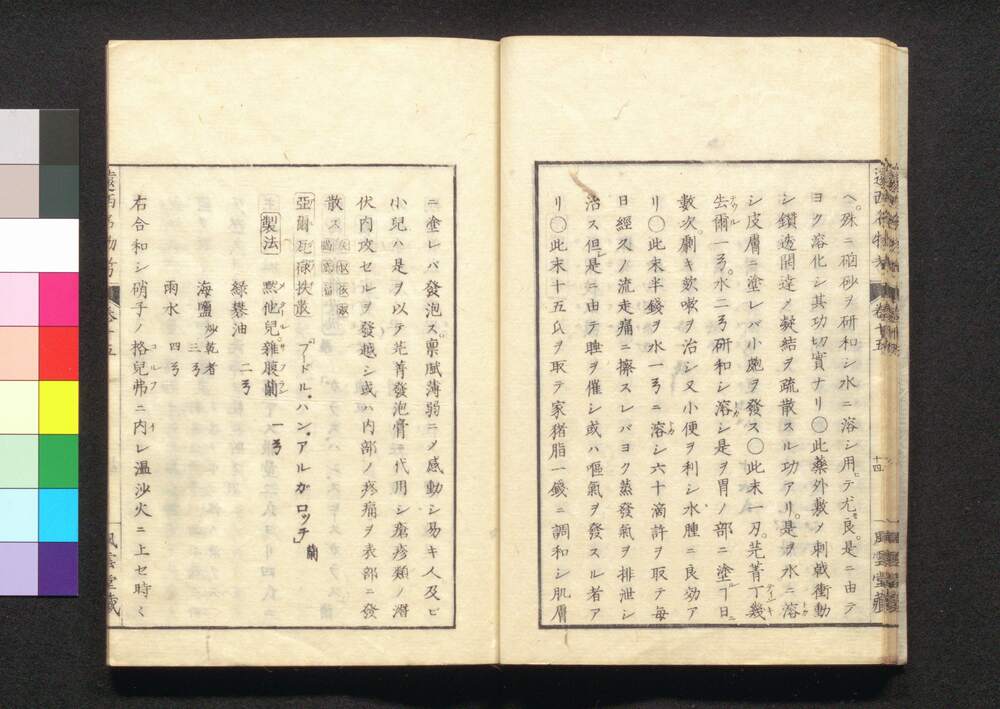 ヘ。殊ニ磠砂ヲ研和シ水ニ溶シ用テ尤良。是ニ由テ
ヨク溶化シ其功切實ナリ〇此藥外敷ノ刺戟衝動
シ鑽透開達メ凝結ヲ疏散スル功アリ。是ヲ水ニ溶
シ皮膚ニ塗レバ小皰ヲ發ス〇此末一刃。芫菁丁幾
去爾一弓。水二弓研和シ溶シ是ヲ胃ノ部ニ塗丁日
數次。劇キ欬嗽ヲ治シ又小便ヲ利シ水腫ニ良効ア
リ〇此末半錢ヲ水一弓ニ溶シ六十滴許ヲ取テ毎
日經久ノ流走痛ニ擦スレバヨク蒸發氣ヲ排泄シ
治ス但是ニ由テ睡ヲ催シ或ハ嘔氣ヲ發スル者ア
リ〇此末十五氏ヲ取テ家猪脂一錢ニ調和シ肌膚
卷十五
十四
風雲堂藏
ニ塗レバ發泡ス稟賦薄弱ニメ感動シ易キ人及ビ
小兒ハ是ヲ以テ芫菁發泡膏ニ代用シ瘡疹類ノ潛
伏内攻セルヲ發越シ或ハ内部ノ疼痛ヲ表部ニ發
散ス
プードル・ハン・アルガロッチ 蘭
製法 蘭 一弓
緑礬油 二弓
海鹽 炒乾者 三弓
雨水 四弓
右合和シ硝子ノ格兒弗ニ内レ温沙火ニ上セ時々
風雲堂藏